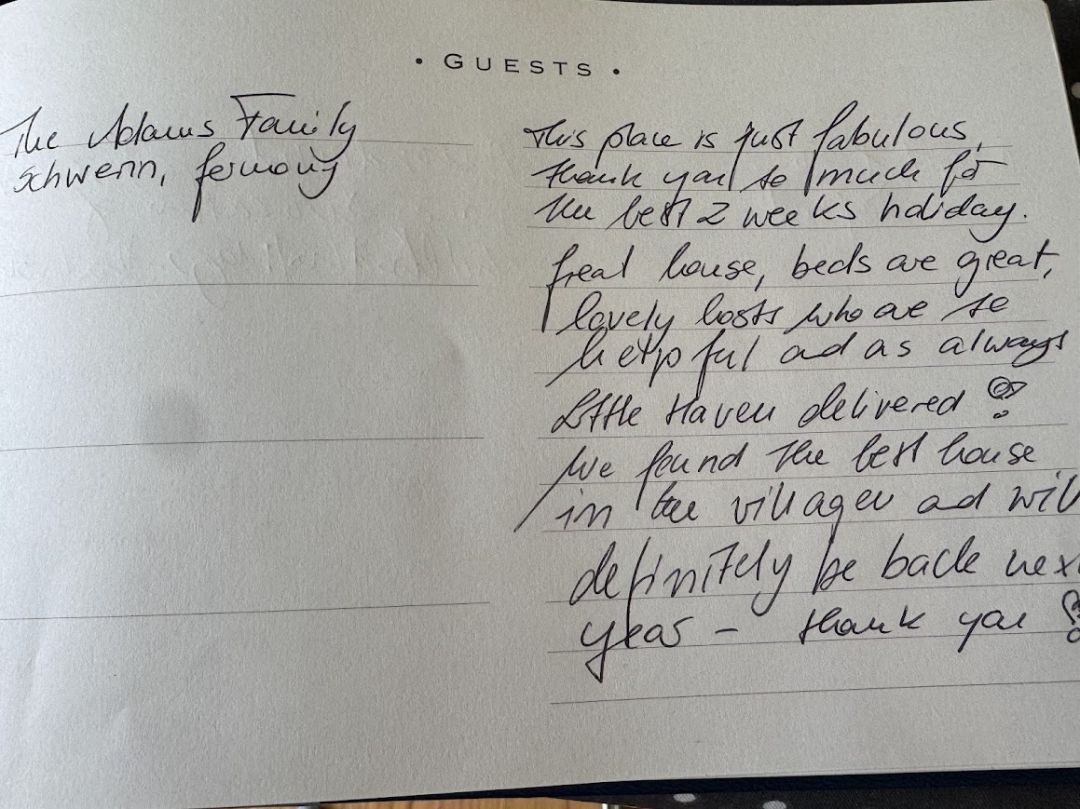 • GUESTS •
The Adams Family
Schwerin, Germany
This place is just fabulous,
thank you so much for
the best 2 weeks holiday.
Great house, beds are great,
lovely hosts who are so
helpful ad as always
Little Haven delivered!
We found the best house
in the village ad will
definitely be back next
year - thank you!